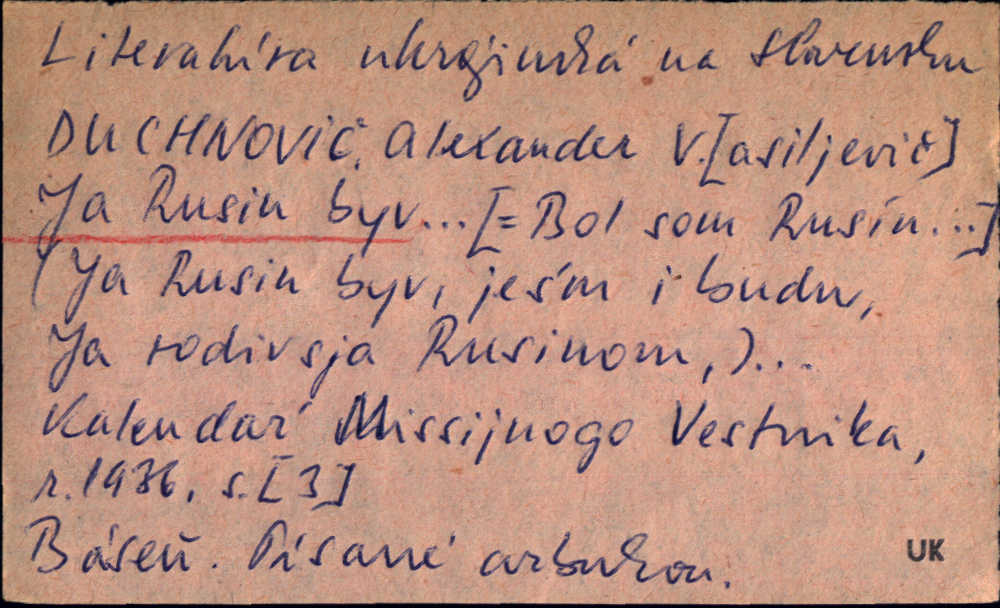 Literatúra ukrajinská na Slovensku
DUCHNOVIČ, Alexander V.[asiljevič]
Ja Rusin byv...[=Bol som Rusín...]
(Ja Rusin byv, jesm i budu,
Ja rodivsja Rusinom,)...
Kalendar Missijnogo Vestnika,
r.1936, s.[3]
Báseň. Písané azbukou.
UK